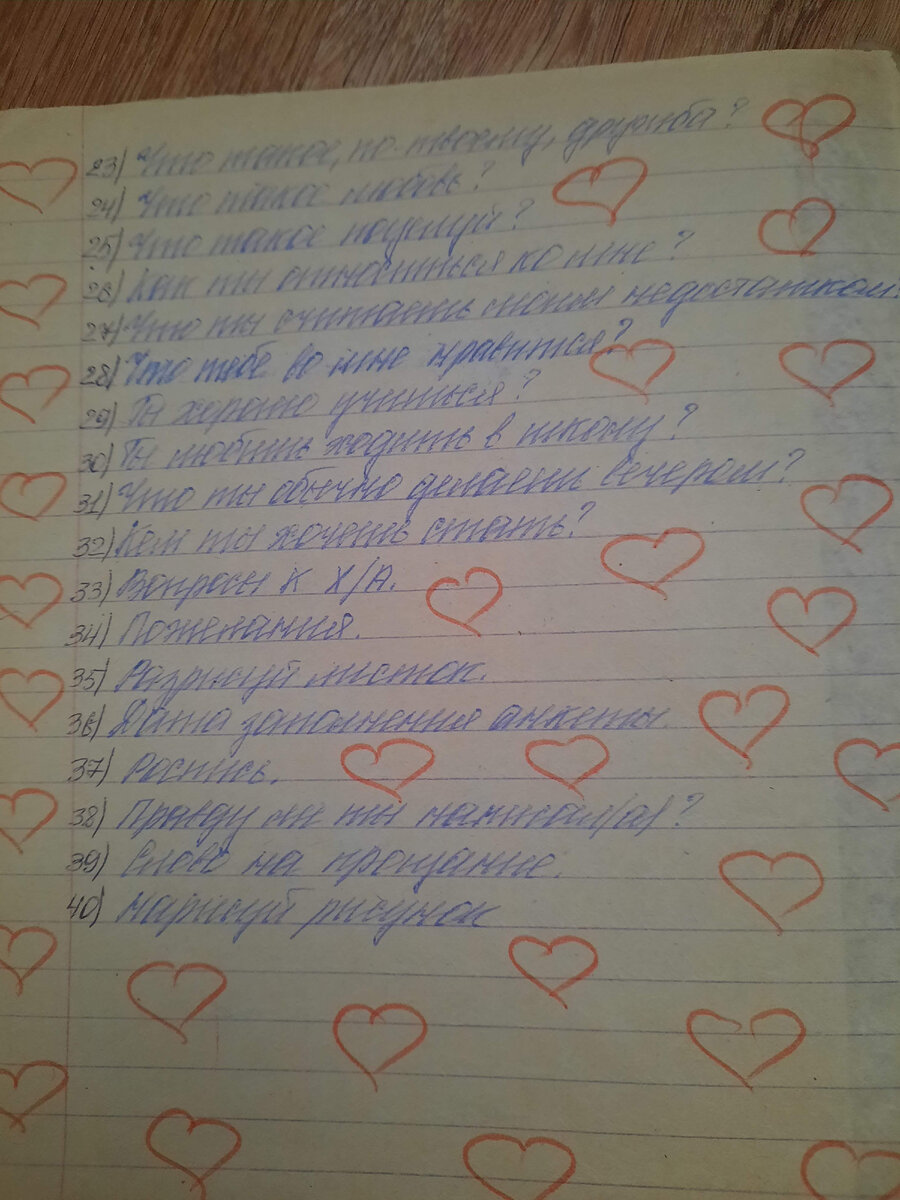 23) Что такое, по твоему, дружба?
24) Что такое любовь?
25) Что такое поцелуй?
26) Как ты относишься ко мне?
27) Что ты считаешь моим недостатком.
28) Что тебе во мне нравится?
29) Ты хорошо учишься?
30) Ты любишь ходить в школу?
31) Что ты обычно делаешь вечером?
32) Кем ты хочешь стать?
33) Вопросы к Х/А.
34) Пожелания.
35) Разрисуй листок.
36) Дата заполнения анкеты.
37) Роспись.
38) Правду ли ты написал(а)?
39) Слово на прощание.
40) Нарисуй рисунок